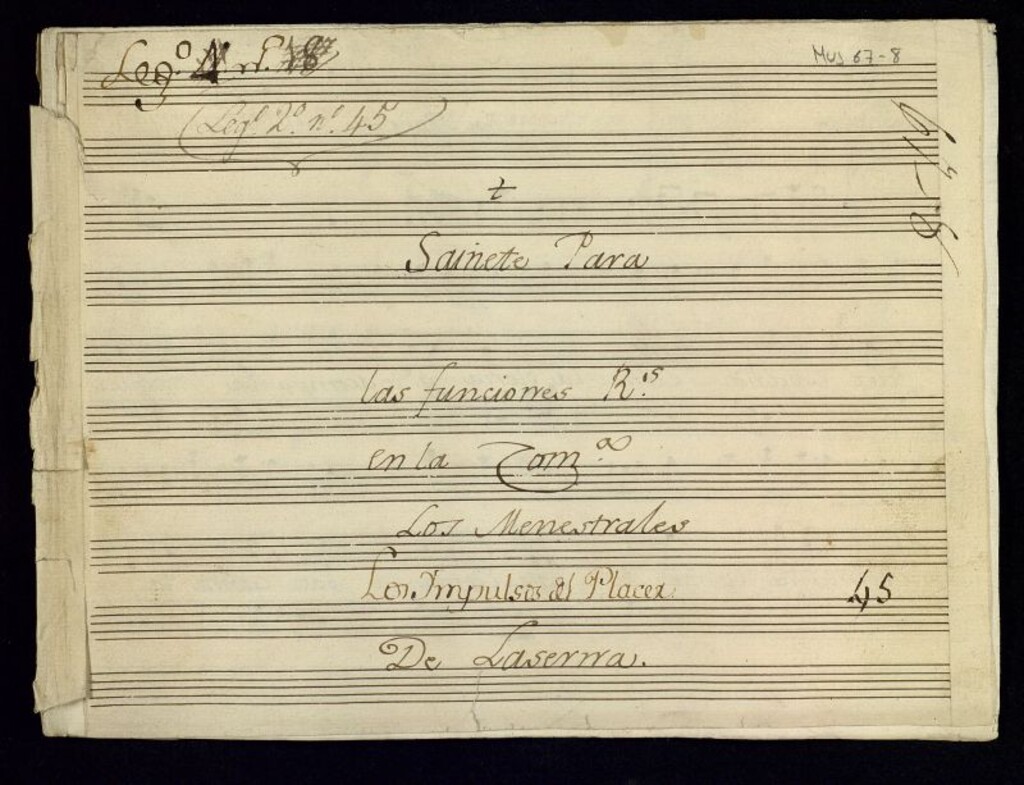 Leg.º 4 n.º 18
Mus 67-8
Leg.º 2.º n.º 45
t
Sainete Para
las funciones R.ˢ
en la Com.ª
Los Menestrales
Los Impulsos del Placer
45
De Laserna.